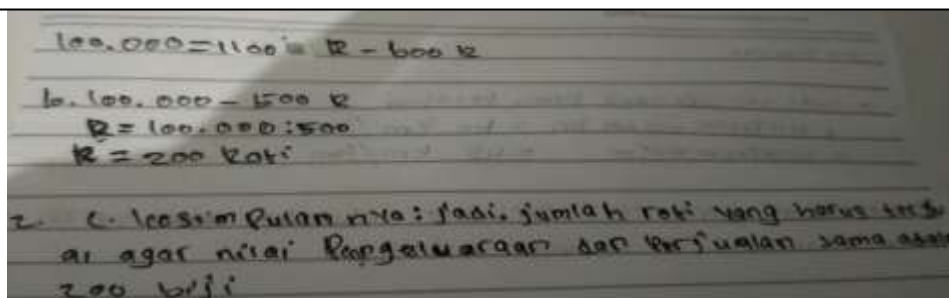 100.000 = 1100 R - 600 R
b. 100.000 - 500 R
R = 100.000 : 500
R = 200 Roti
2. C. kesimpulan nya : jadi, jumlah roti yang harus
al agar nilai Pengeluaraan dan Penjualan sama
200 biji